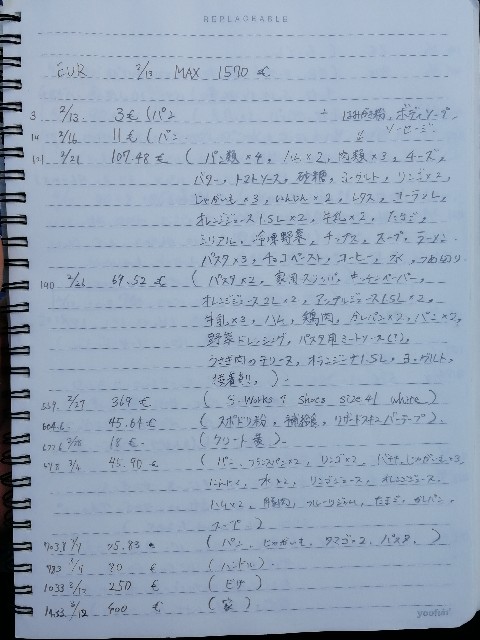 REPLACKABLE
EUR 2/13 MAX 1570 €
3 2/13 3 € (パン
14 2/16 11 € (パン ソーセージ
121 2/21 107.48 € (パン類×4, ハム×2, 肉類×3, チーズ,
バター, トマトソース, 砂糖, ヨーグルト, リンゴ×2,
じゃがいも×3, にんじん×2, レタス,
オレンジジュース1.5L×2, 牛乳×2, たまご,
シリアル, 冷凍野菜, チップス, スープ, ラーメン
パスタ×3, チョコペースト, コーヒー, 水, つめ切り
190 2/26 69.52 € (パスタ×2, 家用スリッパ, キッチンペーパー,
オレンジジュース2L×2, アップルジュース1.5L×2,
牛乳×3, ハム, 鶏肉, カレパン×2, パン×2,
野菜ドレッシング, パスタ用ミートソース(?),
うさぎ肉のテリーヌ, オランジーナ1.5L, ヨーグルト,
接着剤, )
559. 2/27 369 € (S-Works 7 Shoes size 41 white)
604.6 45.64 € (スポドリ粉, 補給食, バーテープ)
18 € (クリート
45.90 € (パン, フランスパン×2, リンゴ×2, バナナ, じゃがいも×3
水×2, リンゴジュース, オレンジジュース
ハム×2, 豚肉, フルーツジャム, たまご, カレパン,
スープ)
703.8 25.83 € (パン, じゃがいも, タマゴ×2, パスタ, )
783 80 € (ハンドル)
1033 250 € (ビザ)
1433 3/12 400 € (家)